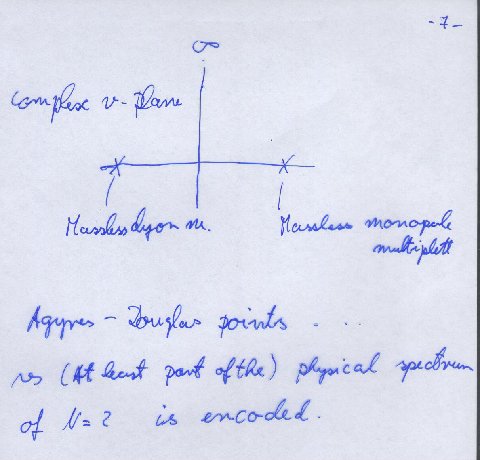 -7-
∞
Complex v-Plane
x x
Massless dyon m. Massless monopole
multiplett
Agyres - Douglas points . . .
(At least part of the) physical spectrum
of N=2 is encoded.